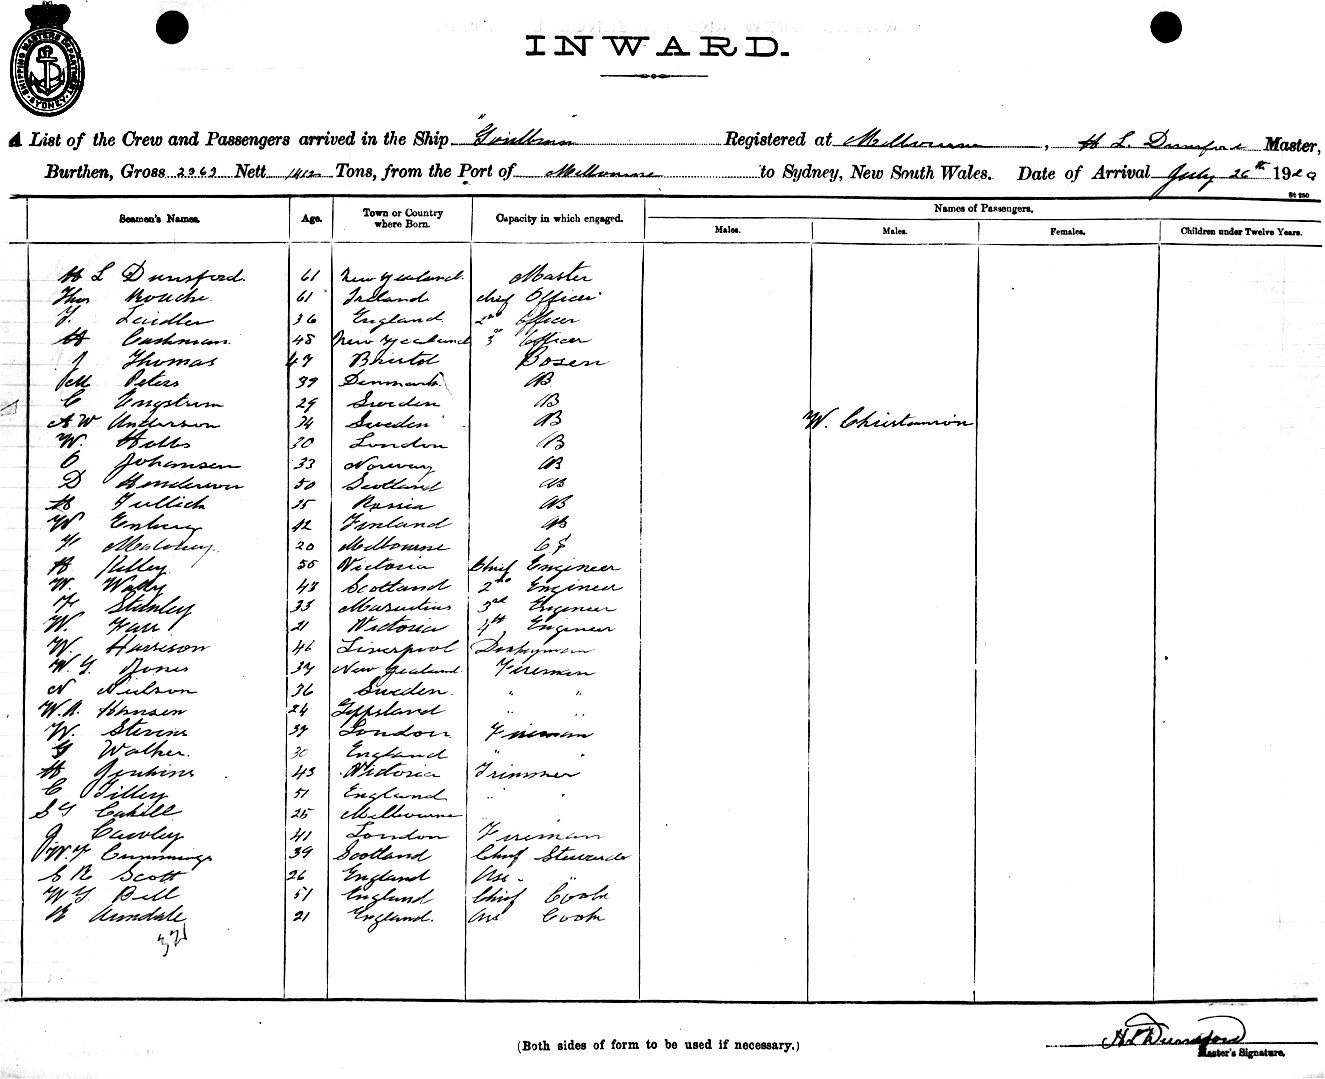 SHIPPING MASTERS DEPARTMENT SYDNEY
INWARD.
A List of the Crew and Passengers arrived in the Ship "Goulburn" Registered at Melbourne, H L Dunsford Master,
Burthen, Gross 2363 Nett 1412 Tons, from the Port of Melbourne to Sydney, New South Wales. Date of Arrival July 26th 19
St 230
Names of Passengers.
Seamen's Names. Age. Town or Country where Born. Capacity in which engaged. Males. Males. Females. Children under Twelve Years.
H L Dunsford 61 New Zealand Master
Thos Rouche 61 Ireland chief Officer
T. Laidler 36 England 2nd Officer
H Cushman 48 New Zealand 3rd Officer
J Thomas 47 Bristol Bosen
Peters 39 Denmark AB
C Engstrom 29 Sweden AB
A W Anderson 34 Sweden AB W. Christianson
W. Hobbs 30 London AB
O Johansen 33 Norway AB
D Henderson 50 Scotland AB
H Tullich 35 Russia AB
W Enberg 42 Finland AB
F Maloney 20 Melbourne
H Kelley 55 Victoria Chief Engineer
W. Watty 43 Scotland 2nd Engineer
F Stanley 33 Mauritius 3rd Engineer
W. Farr 21 Victoria 4th Engineer
W. Harrison 46 Liverpool Donkeyman
W. G. Jones 37 New Zealand Fireman
N Neilson 36 Sweden " "
W.A. Hansen 24 Gippsland " "
W. Stevens 39 London Fireman
G Walker. 30 England " "
H Jenkins 43 Victoria Trimmer
C Tilley 51 England " "
S G Cahill 25 Melbourne " "
J Cawley 41 London Fireman
W.F Cummings 39 Scotland Chief Steward
S R Scott 26 England Ass. "
W G Bell 51 England Chief Cook
R Arundale 21 England. Ass Cook
32
H L Dunsford
Master's Signature.
(Both sides of form to be used if necessary.)